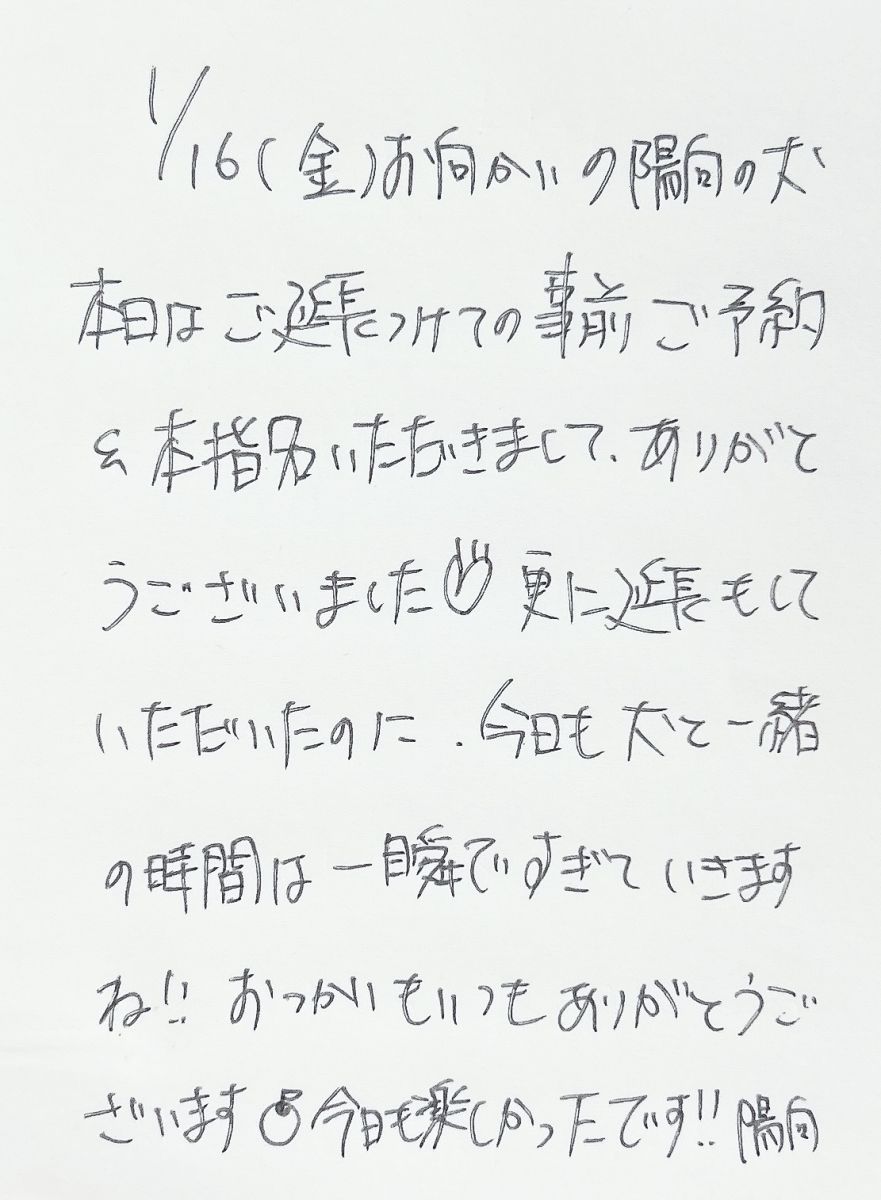 1/16(金)お向かいの陽向の犬
本日はご延長つけての事前ご予約
&本指名いただきまして、ありがと
うございました 更に延長もして
いただいたのに、今日も犬と一緒
の時間は一瞬ですぎていきます
ね!! おつかいもいつもありがとうご
ざいます 今日も楽しかったです!! 陽向